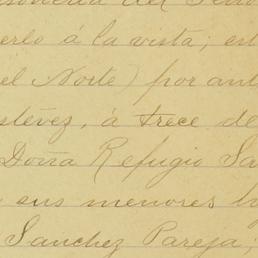 del
erlo á la vista; est
el Norte) por ant
stévez, á trece de
Doña Refugio Sa
sus menores h
Sanchez Pareja;